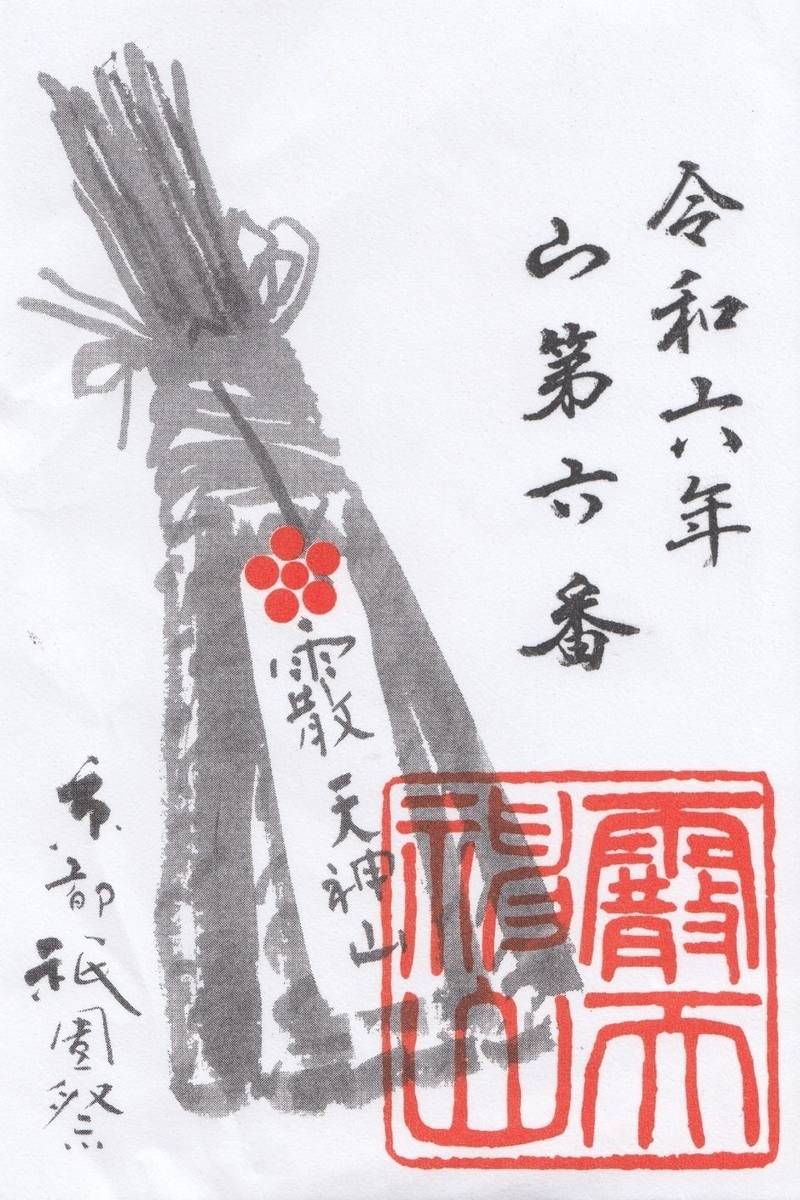 令和六年
山第六番
霰天神山
京都祇園祭
霰天神山